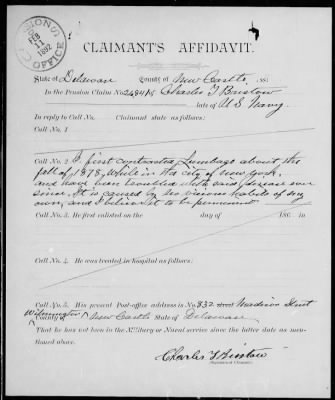 PENSION OFFICE
FEB
17
1892
CLAIMANT'S AFFIDAVIT.
State of Delaware County of New Castle, ss:
In the Pension Claim No. Charles T Bristow
late of U.S. Navy.
In reply to Call No. Claimant state as follows:
Call No. 1
Call No. 2 I first contracted Lumbago about the
fall of 1878, while in the city of New York,
and have been troubled with said disease ever
since. It is caused by no vicious habits of my
own, and I believe it to be permanent
Call No. 3. He first enlisted on the day of 186 in
Call No. 4. He was treated in hospital as follows:
Call No. 5. His present Post-office address is No. 832 street Madison Street
Wilmington
County of New Castle State of Delaware
That he has not been in the Military or Naval service since the latter date as men-
tioned above.
Charles T Bristow
(Signature of Claimant.)